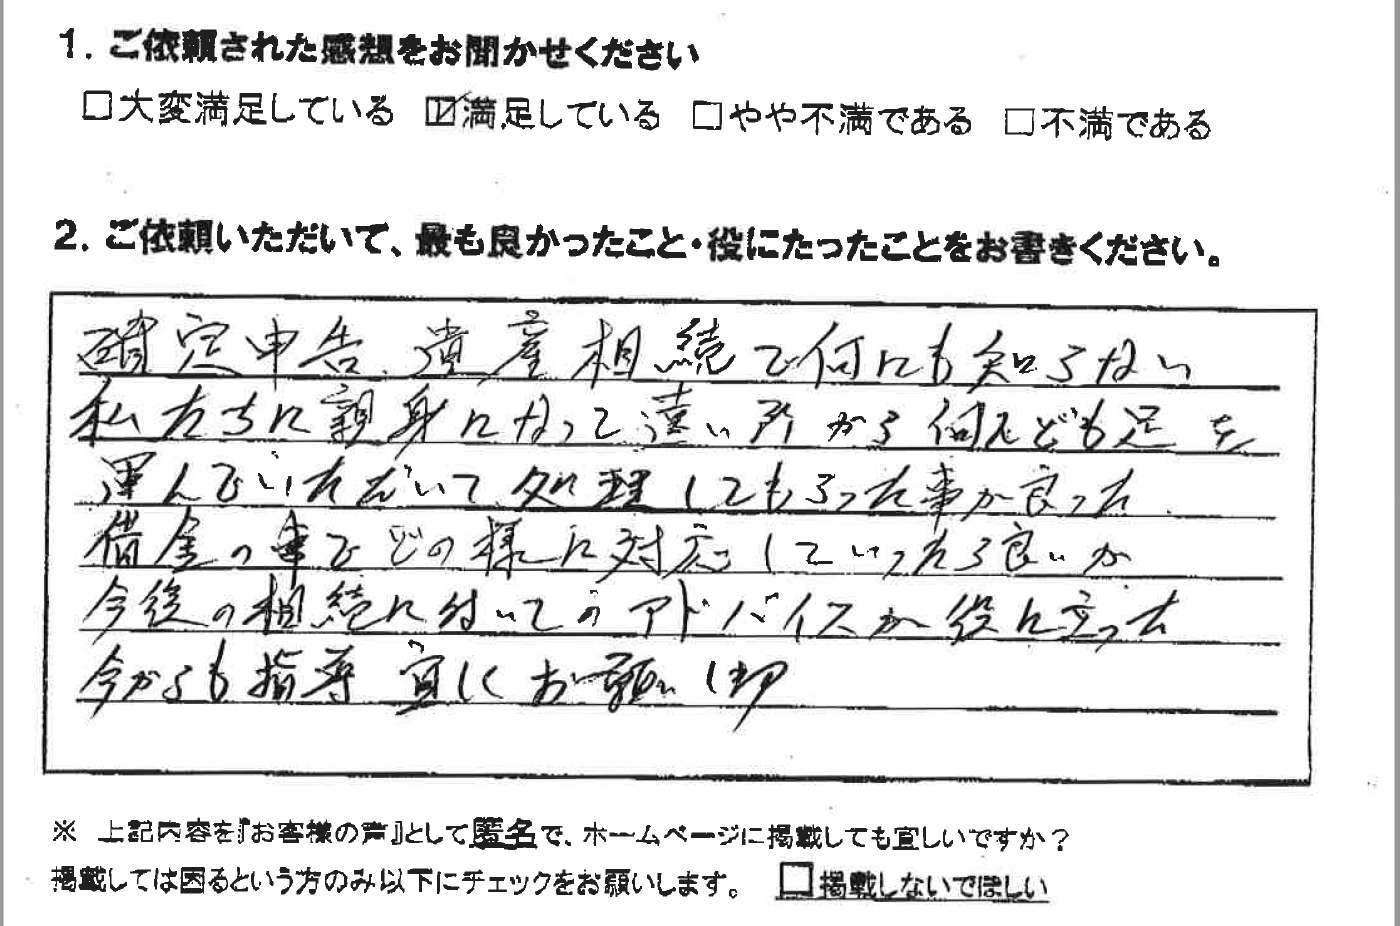 1. ご依頼された感想をお聞かせください
□大変満足している ☑満足している □やや不満である □不満である
2. ご依頼いただいて、最も良かったこと・役にたったことをお書きください。
確定申告、遺産相続で何にも知らない
私たちに親身になって遠い所から何んども足を
運んでいただいて処理してもらった事が良った
借金の事でどの様に対応していったら良いか
今後の相続に付いてのアドバイスが役に立った
今からも指導宜しくお願いします
※ 上記内容を『お客様の声』として匿名で、ホームページに掲載しても宜しいですか？
掲載しては困るという方のみ以下にチェックをお願いします。 □掲載しないでほしい